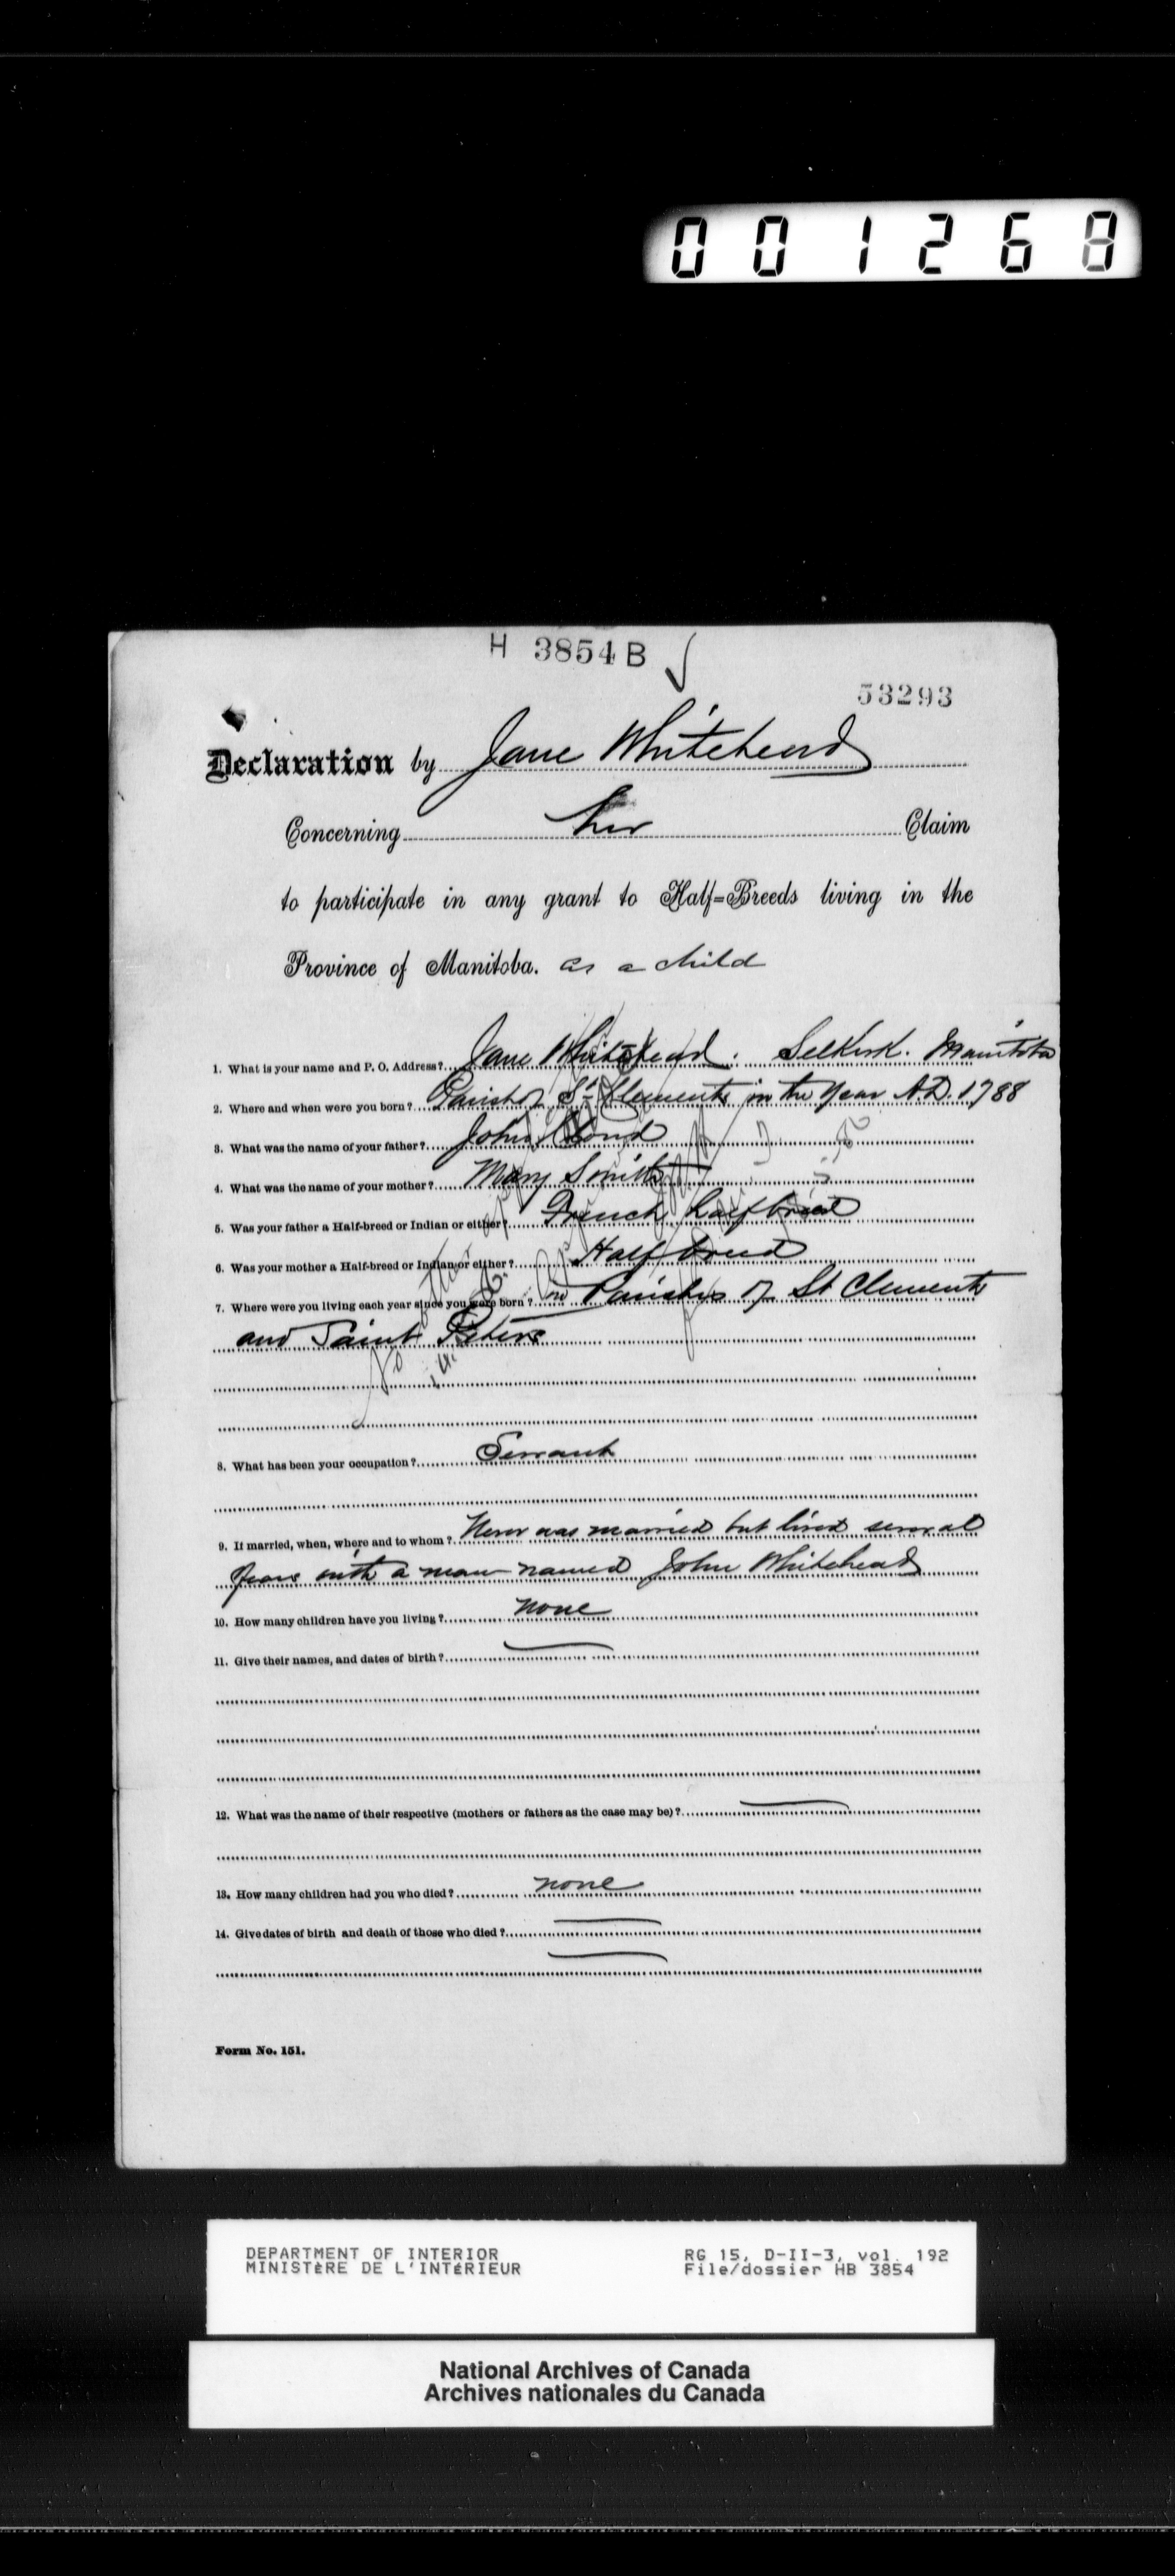 001268
H 3854 B
53293
Declaration by Jane Whitehead
Concerning her Claim
to participate in any grant to Half=Breeds living in the
Province of Manitoba. as a child
1. What is your name and P. O. Address? Jane Whitehead. Selkirk. Manitoba
2. Where and when were you born? Parish of St Clements in the year A.D. 1788
3. What was the name of your father? John
4. What was the name of your mother? Mary Smith
5. Was your father a Half-breed or Indian or either? French halfbreed
6. Was your mother a Half-breed or Indian or either? Half breed
7. Where were you living each year since you were born? in Parishes of St Clements
and Saint Peters
8. What has been your occupation? Servant
9. If married, when, where and to whom? Never was married but lived several
years with a man named John Whitehead
10. How many children have you living? none
11. Give their names, and dates of birth?
12. What was the name of their respective (mothers or fathers as the case may be)?
13. How many children had you who died? none
14. Give dates of birth and death of those who died?
Form No. 151.
DEPARTMENT OF INTERIOR
MINISTÈRE DE L'INTÉRIEUR
RG 15, D-II-3, vol. 192
File/dossier HB 3854
National Archives of Canada
Archives nationales du Canada